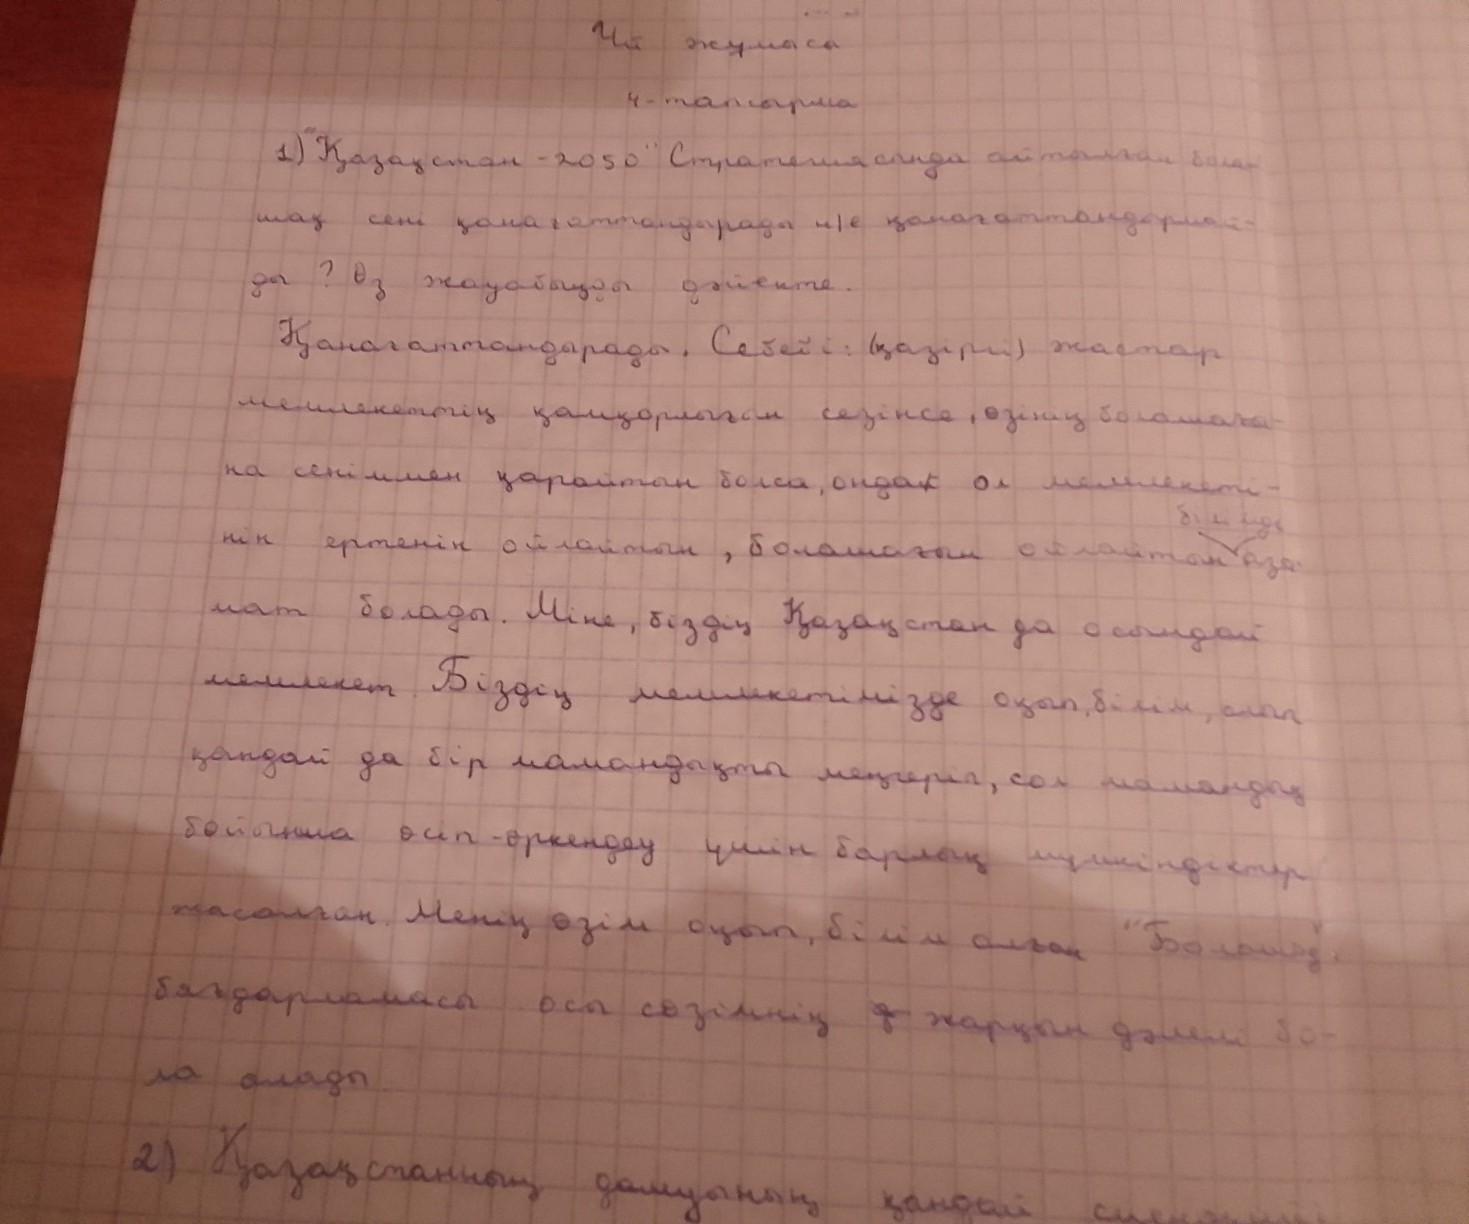 Үй жұмысы
4-тапсырма
1) "Қазақстан-2050" Стратегиясында айтылған бола-
шақ сені қанағаттандырады н/е қанағаттандырмай-
ды? Өз жауабыңды дәйекте.
Қанағаттандырады. Себебі: (қазіргі) жастар
мемлекеттің қамқорлығын сезінсе, өзінің болашағы-
на сеніммен қарайтын болса, ондай ол мемлекеті-
білімді
нің ертеңін ойлайтын, болашағын ойлайтын аза-
мат болады. Міне, біздің Қазақстан да осындай
мемлекет. Біздің мемлекетімізде оқып, білім, алып
қандай да бір мамандықты меңгеріп, сол мамандық
бойынша өсіп-өркендеу үшін барлық мүмкіндіктер
жасалған. Менің өзім оқып, білім алған "Болашақ"
бағдарламасы осы сөзімнің жарқын дәлелі бо-
ла алады.
2) Қазақстанның дамуының қандай